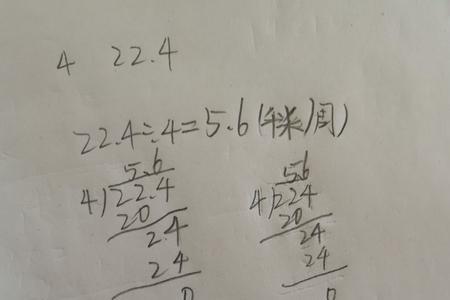 4 22.4
22.4÷4=5.6(千米/周)
5.6
4)22.4
20
2.4
24
0
56
4)224
20
24
24
0